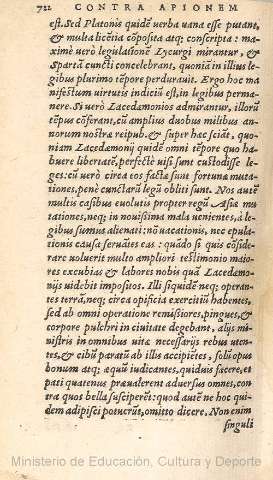 722 CONTRA APIONEM
est. Sed Platonis quidē verba vana esse putant,
& multa licētia cōposita atq; conscripta: ma-
ximè verò legislationē Lycurgi mirantur, &
Spartā cuncti concelebrant, quonià in illius le-
gibus plurimo tēpore perdurauit. Ergo hoc ma
nifestum virtutis indiciū est, in legibus perma-
nere. Si verò Lacedæmonios admirantur, illorū
tēpus cōferant, cū amplius duobus milibus an-
norum nostræ reipub. & super hac sciāt, quo-
niam Lacedæmonij quidē omni tēpore quo ha-
buere libertatē, perfectè visi sunt custodisse le-
ges: cū verò circa eos factæ sunt fortunæ muta-
tiones, penè cunctarū legū obliti sunt. Nos autē
multis casibus euolutis propter regū Asiæ mu-
tationes, neq; in nouissima mala venientes, à le-
gibus sumus alienati: nō vacationis, nec epula-
tionis causa seruātes eas: quādo si quis cōside-
rare voluerit multo ampliori testimonio maio-
res excubias & labores nobis quā Lacedæmo-
nijs videbit impositos. Illi siquidē neq; operan-
tes terrā, neq; circa opificia exercitiū habentes,
sed ab omni operatione remissiores, pingues, &
corpore pulchri in ciuitate degebant, alijs mi-
nistris in omnibus vitæ necessarijs rebus vten-
tes, & cibū paratū ab illis accipiētes, solū opus
bonum atq; æquū iudicantes, quiduis facere, et
pati quatenus præualerent aduersus omnes, con-
tra quos bella suscipere͂t: quod autē ne hoc qui-
dem adipisci potuerūt, omitto dicere. Non enim
singuli
Ministerio de Educación, Cultura y Deporte